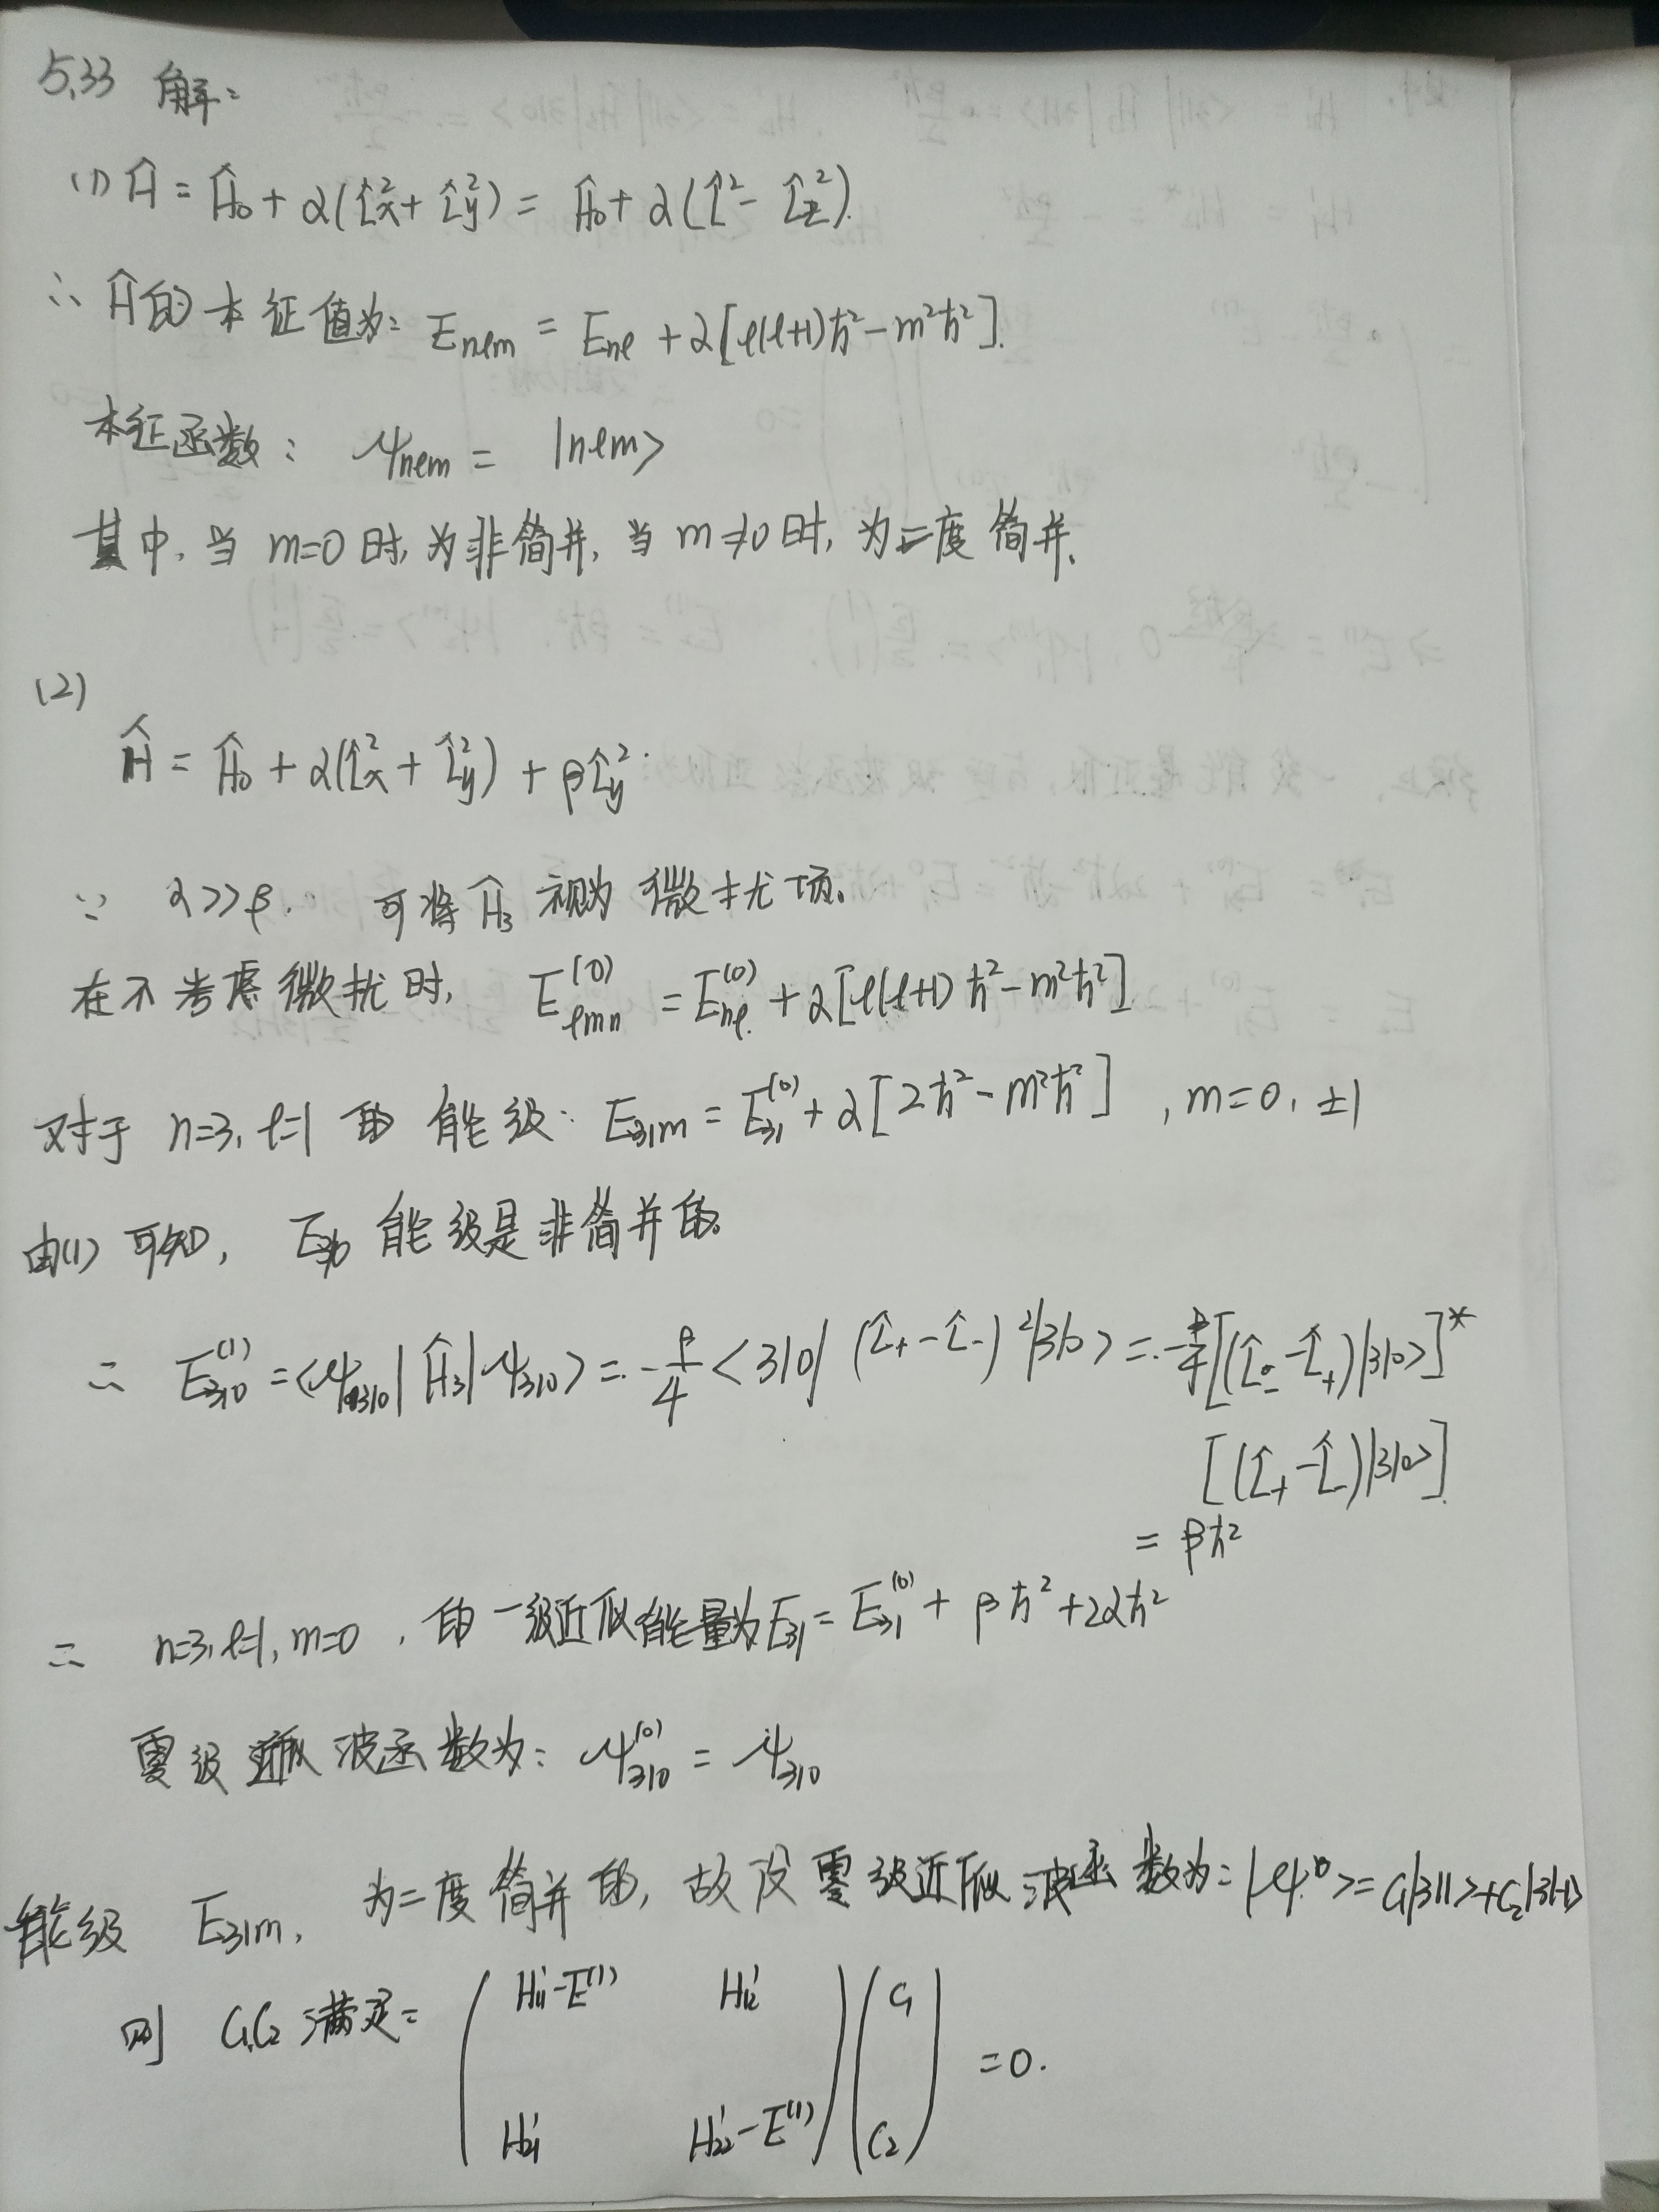 5.33 解:
(1) Ĥ = Ĥ₀ + α(L̂x² + L̂y²) = Ĥ₀ + α(L̂² - L̂z²).
∴ Ĥ的本征值为: Enlm = Enl + α[l(l+1)ħ² - m²ħ²].
本征函数: ψnlm = |nlm>
其中, 当 m=0 时, 为非简并, 当 m≠0 时, 为二度简并.
(2)
Ĥ = Ĥ₀ + α(L̂x² + L̂y²) + βL̂y².
∵ α>>β. 可将 Ĥ₃ 视为微扰项.
在不考虑微扰时, Elmn⁽⁰⁾ = Enl⁽⁰⁾ + α[l(l+1)ħ² - m²ħ²]
对于 n=3, l=1 的能级: E31m = E31⁽⁰⁾ + α[2ħ² - m²ħ²], m=0, ±1
由(1)可知, E310 能级是非简并的.
∴ E310⁽¹⁾ = <ψ310|Ĥ₃|ψ310> = -β/4 <310|(L̂+ - L̂-)²|310> = -β/4 [(L̂- - L̂+)|310>]*
[(L̂+ - L̂-)|310>]
= βħ²
∴ n=3, l=1, m=0, 的一级近似能量为E31 = E31⁽⁰⁾ + βħ² + 2αħ²
零级近似波函数为: ψ310⁽⁰⁾ = ψ310
能级 E31m, 为二度简并的, 故设零级近似波函数为: |ψ⁰> = C₁|311> + C₂|31-1>
则 C₁C₂ 满足: ( H'11 - E⁽¹⁾ H'12 ) ( C₁ )
= 0.
( H'21 H'22 - E⁽¹⁾ ) ( C₂ )